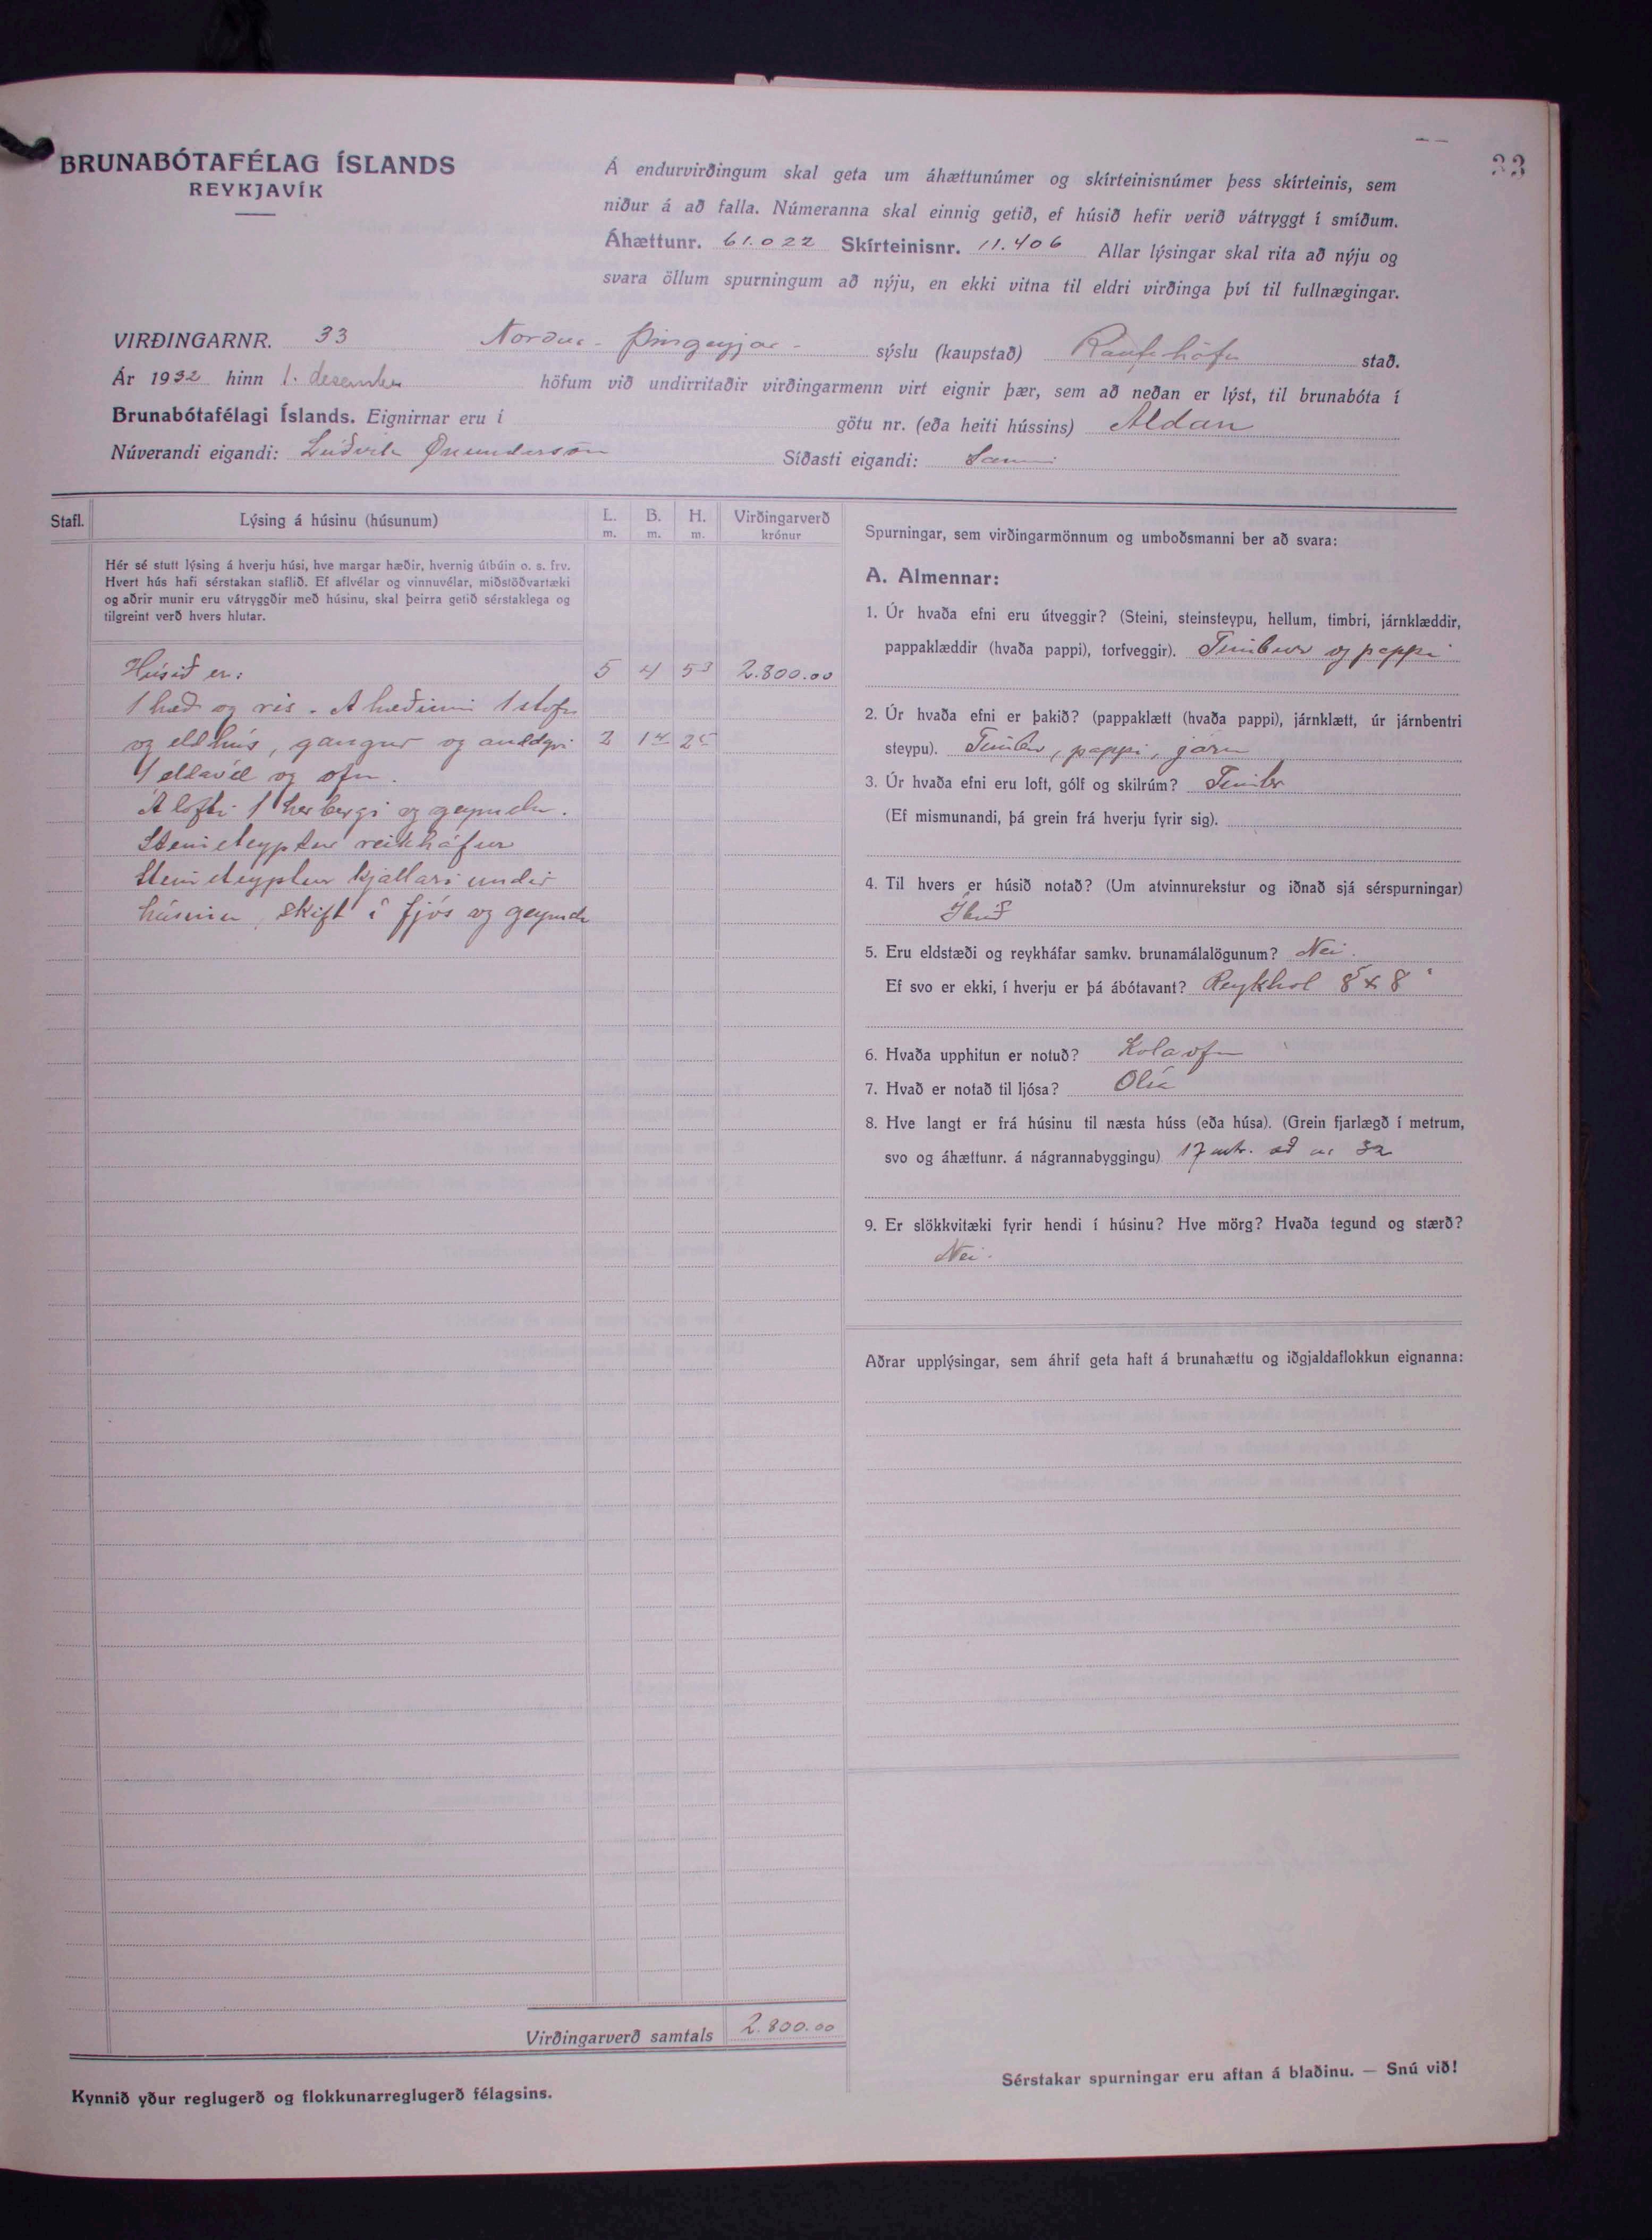 33
BRUNABÓTAFÉLAG ÍSLANDS
REYKJAVÍK
Á endurvirðingum skal geta um áhættunúmer og skírteinisnúmer þess skírteinis, sem
niður á að falla. Númeranna skal einnig getið, ef húsið hefir verið vátryggt í smíðum.
Áhættunr. 61.022 Skírteinisnr. 11.406 Allar lýsingar skal rita að nýju og
svara öllum spurningum að nýju, en ekki vitna til eldri virðinga því til fullnægingar.
VIRÐINGARNR. 33 Norður-Þingeyjar- sýslu (kaupstað) Raufarhöfn stað.
Ár 1932 hinn 1. desember höfum við undirritaðir virðingarmenn virt eignir þær, sem að neðan er lýst, til brunabóta í
Brunabótafélagi Íslands. Eignirnar eru í götu nr. (eða heiti hússins) Aldan
Núverandi eigandi: Lúðvik Önundarson Síðasti eigandi: Sami
Stafl. Lýsing á húsinu (húsunum) L. m. B. m. H. m. Virðingarverð krónur
Hér sé stutt lýsing á hverju húsi, hve margar hæðir, hvernig útbúin o. s. frv.
Hvert hús hafi sérstakan staflið. Ef aflvélar og vinnuvélar, miðstöðvartæki
og aðrir munir eru vátryggðir með húsinu, skal þeirra getið sérstaklega og
tilgreint verð hvers hlutar.
Húsið er: 5 4 5³ 2.800.00
1 hæð og ris. Á hæðinni 1 stofa
og eldhús, gangur og anddyri 2 1⁴ 2⁵
1 eldavél og ofn.
Á lofti 1 herbergi og geymsla.
Steinsteyptur reikháfur
Steinsteyptur kjallari undir
húsinu, skift í fjós og geymslu
Virðingarverð samtals 2.800.00
Kynnið yður reglugerð og flokkunarreglugerð félagsins.
Spurningar, sem virðingarmönnum og umboðsmanni ber að svara:
A. Almennar:
1. Úr hvaða efni eru útveggir? (Steini, steinsteypu, hellum, timbri, járnklæddir,
pappaklæddir (hvaða pappi), torfveggir). Timbur og pappi
2. Úr hvaða efni er þakið? (pappaklætt (hvaða pappi), járnklætt, úr járnbentri
steypu). Timbur, pappi, járn
3. Úr hvaða efni eru loft, gólf og skilrúm? Timbur
(Ef mismunandi, þá grein frá hverju fyrir sig).
4. Til hvers er húsið notað? (Um atvinnurekstur og iðnað sjá sérspurningar)
Íbúð
5. Eru eldstæði og reykháfar samkv. brunamálalögunum? Nei.
Ef svo er ekki, í hverju er þá ábótavant? Reykhol 8" x 8"
6. Hvaða upphitun er notuð? Kolaofn
7. Hvað er notað til ljósa? Olía
8. Hve langt er frá húsinu til næsta húss (eða húsa). (Grein fjarlægð í metrum,
svo og áhættunr. á nágrannabyggingu) 17 mtr. að nr 32
9. Er slökkvitæki fyrir hendi í húsinu? Hve mörg? Hvaða tegund og stærð?
Nei.
Aðrar upplýsingar, sem áhrif geta haft á brunahættu og iðgjaldaflokkun eignanna:
Sérstakar spurningar eru aftan á blaðinu. — Snú við!